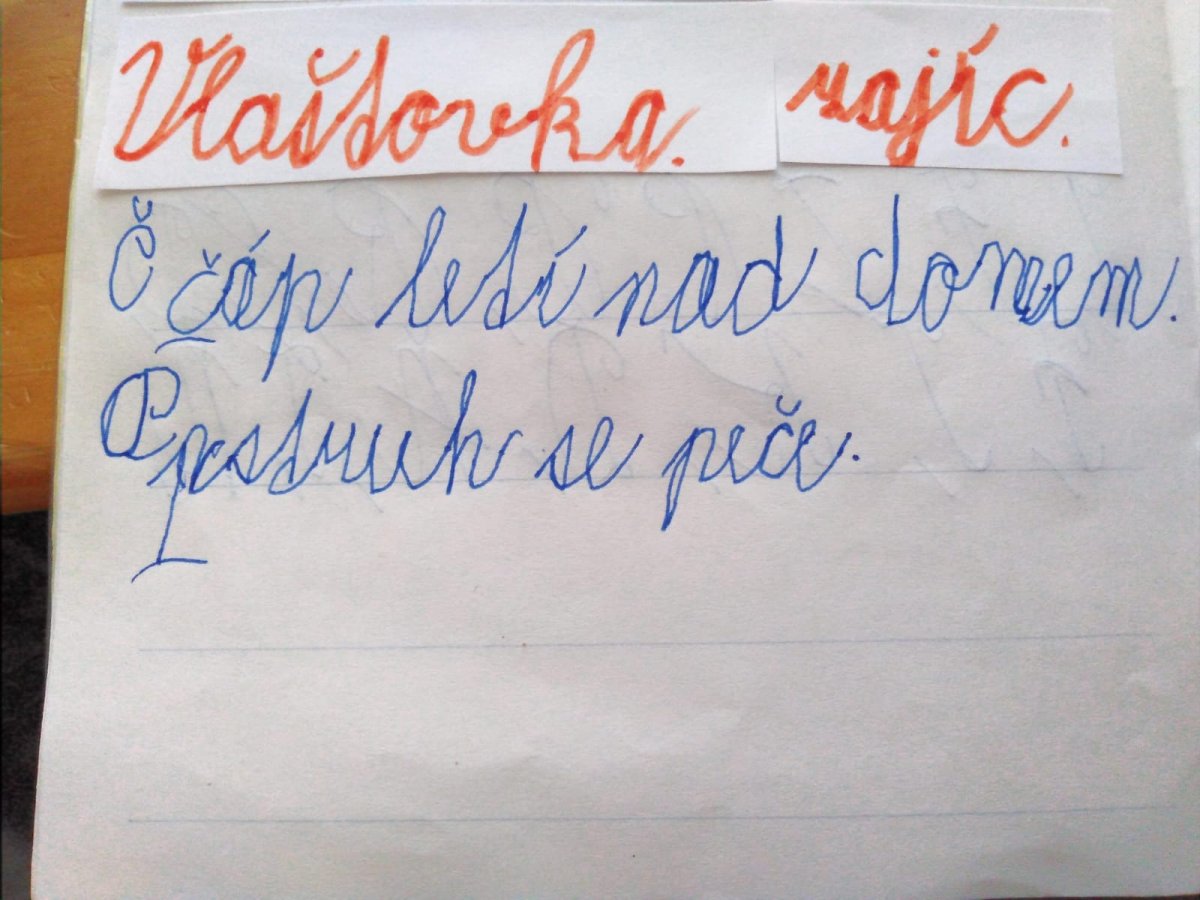 Vlaštovka. zajíc.
Č čáp letí nad domem.
P pstruh se peče.